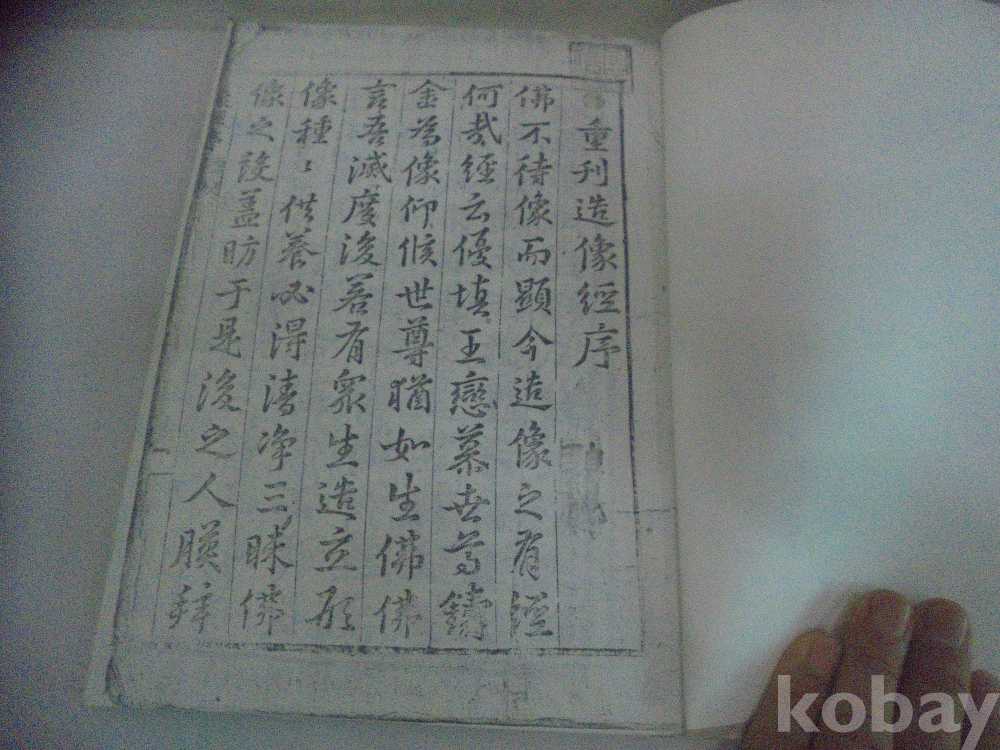 重刊造像經序
佛不待像而顯今造像之有經
何哉經云優填王戀慕世尊鑄
金爲像仰候世尊猶如生佛佛
言吾滅度後若有衆生造立形
像種〻供養必得清净三昧佛
像之設盖昉于是後之人
kobay